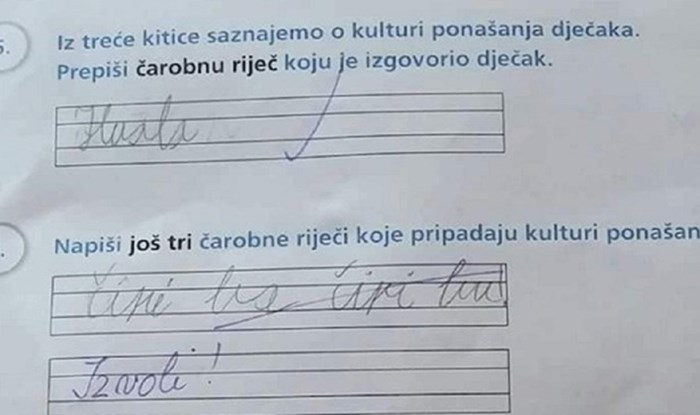 5.
Iz treće kitice saznajemo o kulturi ponašanja dječaka.
Prepiši čarobnu riječ koju je izgovorio dječak.
Hvala
Napiši još tri čarobne riječi koje pripadaju kulturi ponašan
čiri bu čiri bu
Izvoli!